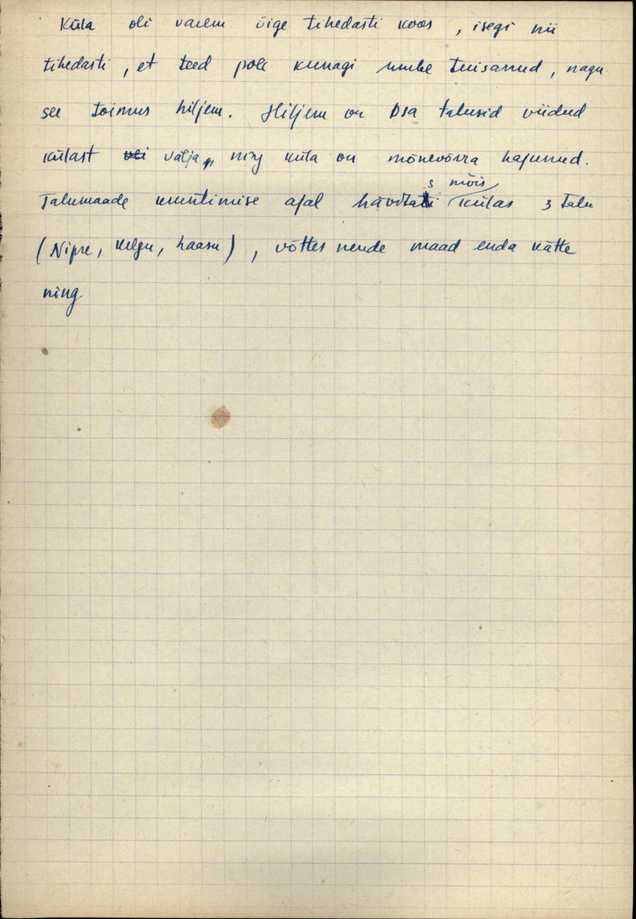 Küla oli varem õige tihedasti koos, isegi nii
tihedasti, et teed pole kunagi umbe tuisanud, nagu
see toimus hiljem. Hiljem on osa talusid viidud
külast välja, ning küla on mõnevõrra hajunud.
Talumaade kruntimise ajal hävitas mõis külas 3 talu
(Nipre, Kelgu, Haasu), võttes nende maad enda kätte
ning